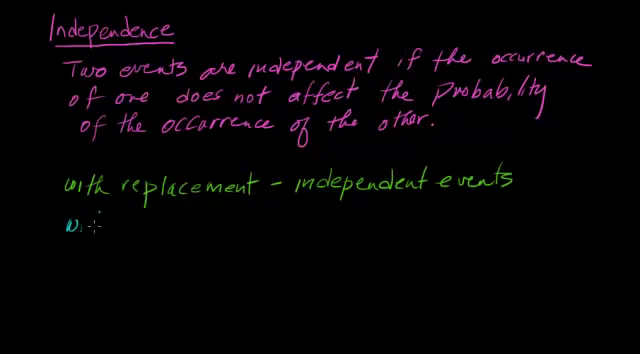 Independence
Two events are independent if the occurrence
of one does not affect the Probability
of the occurrence of the other.
with replacement - independent events
wi